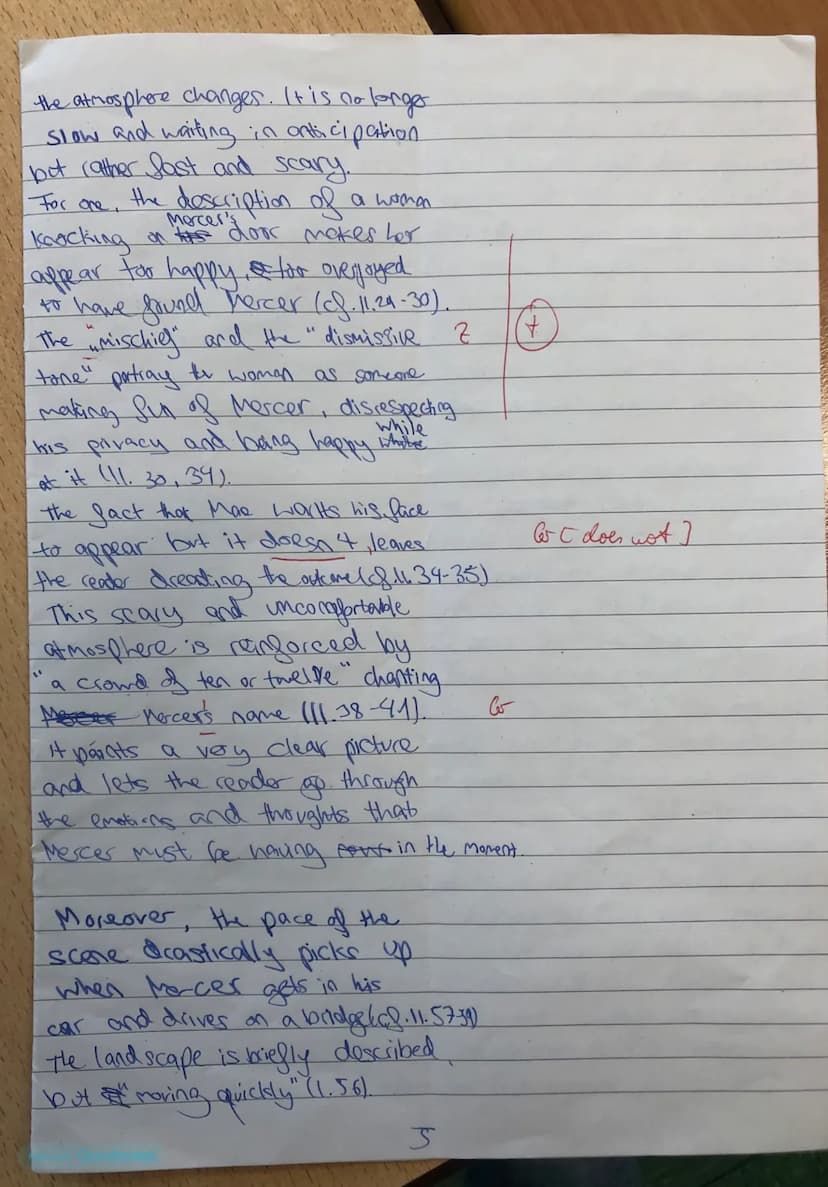 the atmosphere changes. It is no longer
slow and waiting in anticipation
but rather fast and scary.
For one, the description of a woman
knocking on Mercer's door makes her
appear too happy, too overjoyed
to have found Mercer (cf. ll. 29-30).
The "mischief" and the "dismissive Z +
tone" portray the woman as someone
making fun of Mercer, disrespecting
his privacy and being happy while
at it (ll. 30, 34).
The fact that Mae wants his face
to appear but it doesn't, leaves Gr [does not]
the reader dreading the outcome (cf. ll. 34-35)
This scary and uncomfortable
atmosphere is reinforced by
"a crowd of ten or twelve" chanting
Mercer's name (ll. 38-41). Gr
It paints a very clear picture
and lets the reader go through
the emotions and thoughts that
Mercer must be having in the moment.
Moreover, the pace of the
scene drastically picks up
when Mercer gets in his
car and drives on a bridge (cf. ll. 57-59)
The landscape is briefly described,
but "moving quickly" (l. 56).
5